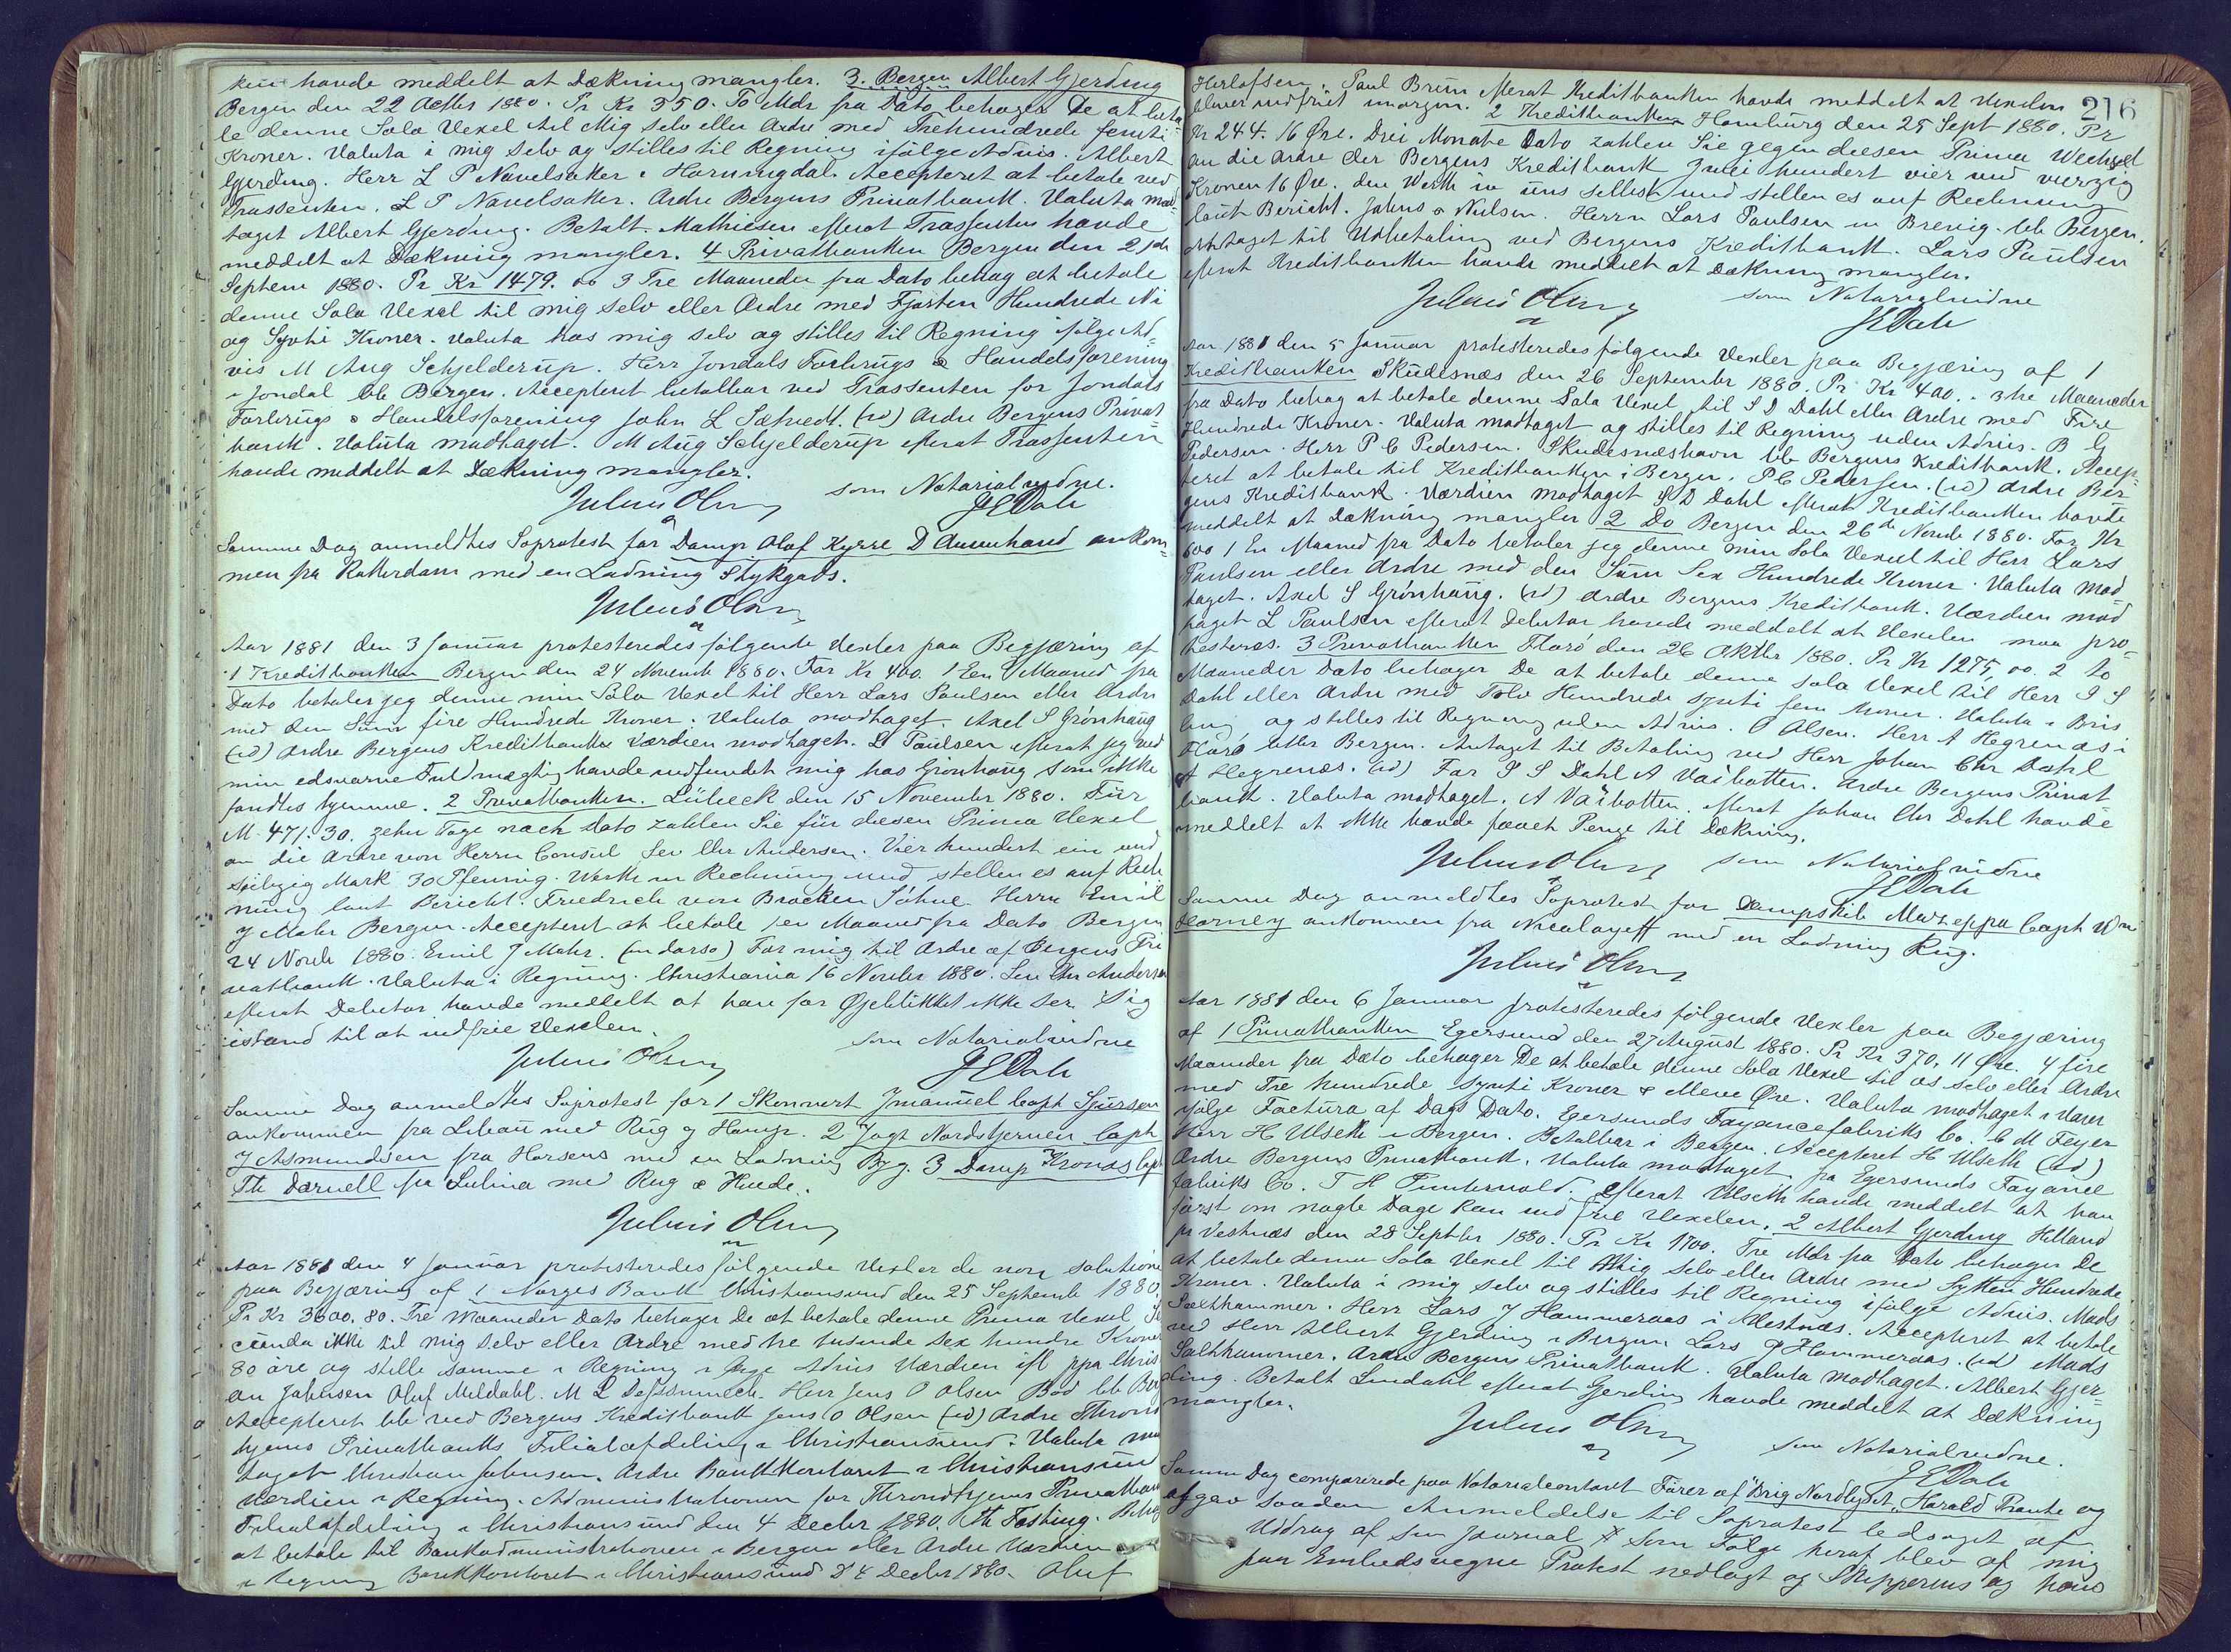 ken havde meddelt at Dækning mangler. 3. Bergen Albert Gjerding
Bergen den 22 Octbr 1880. Pr Kr 350. To Mdr fra Dato behager De at beta
le denne Sola Vexel til Mig selv eller Ordre med Trehundrede femti
Kroner. Valuta i mig selv og stilles til Regning ifølge Advis. Albert
Gjerding. Herr L P Navelsaker i Hornindal. Accepteret at betale ved
Trassenten. L P Navelsaker. Ordre Bergens Privatbank. Valuta mod-
taget Albert Gjerding. Betalt. Mathiesen efterat Trassenten havde
meddelt at Dækning mangler. 4 Privatbanken Bergen den 21de
Septem 1880. Pr Kr 1479. 00 3 Tre Maaneder fra Dato behag at betale
denne Sola Vexel til mig selv eller Ordre med Fjorten Hundrede Ni
og Sytti Kroner. Valuta hos mig selv og stilles til Regning ifølge Ad-
vis M Aug Schjelderup. Herr Jondals Forbrugs & Handelsforening
i Jondal bb Bergen. Accepteret betalbar ved Trassenten for Jondals
Forbrugs & Handelsforening John L (id) Ordre Bergens Privat
bank. Valuta modtaget. M Aug Schjelderup efterat Trassenten
havde meddelt at Dækning mangler.
Julius Olsen som Notarialvidne.
JEDahl
Samme Dag anmeldtes Søprotest for Damp Olaf Kyrre D ankom
men fra Rotterdam med en Ladning Stykgods.
Julius Olsen
Aar 1881 den 3 Januar protesteredes følgende Vexler paa Begjæring af
1 Kreditbanken Bergen den 24 Novemb 1880. For Kr 400. 1 En Maaned fra
Dato betaler jeg denne min Sola Vexel til Herr Lars Paulsen eller Ordre
med den Sum fire Hundrede Kroner. Valuta modtaget. Axel S Grønhaug
(id) Ordre Bergens Kreditbank Værdien modtaget. L Paulsen efterat jeg ved
min edsvorne Fuldmægtig havde indfundet mig hos Grönhaug som ikke
fandtes hjemme. 2 Privatbanken. Lübeck den 15 November 1880. Für
M. 471. 30. zehn Tage nach dato zahlen Sie für diesen Prima Vexel
an die Ordre von Herrn Consul Sev Chr Andersen. Vier hundert ein und
siebzig Mark 30 Pfennig. Werth in Rechnung und stellen es auf Rech
nung laut Bericht. Friedrich von Brocken Söhne Herrn Emil
J Mohr Bergen. Accepteret at betale 1 en Maaned fra Dato Bergen
24 Novb 1880. Emil J Mohr. (in dorso) For mig til Ordre af Bergens Pri
vatbank. Valuta i Regning. Christiania 16 Novbr 1880. Sev Chr Andersen
efterat Debitor havde meddelt at han for Øjeblikket ikke ser Sig
istand til at indfrie Vexelen.
Julius Olsen som Notarialvidne
JEDahl
Samme Dag anmeldtes Søprotest for 1 Skonnert Imanuel Capt
ankommen fra Libau med Rug og Hamp. 2 Jagt Nordstjernen Capt
J Asmundsen fra Horsens med en Ladning Byg. 3 Damp Kronos Capt
Th Darnell fra Sulina med Rug & Hvede.
Julius Olsen
Aar 1881 den 4 Januar protesteredes følgende Vexler de non solutione
paa Begjæring af 1 Norges Bank Christiansund den 25 Septemb 1880.
Pr Kr 3600. 80. Tre Maaneder Dato behager De at betale denne Prima Vexel Se
cunda ikke til mig selv eller Ordre med tre tusinde sex hundre Kroner
80 øre og stille samme i Regning Advis Værdien ifl ppa Chris
an Johnsen Oluf Meldahl. M L Herr Jens O Olsen Bod bb Ber
Accepteret bb ved Bergens Kreditbank Jens O Olsen (id) Ordre Thrond
hjems Privatbanks Filialafdeling i Christiansund. Valuta mod
taget Christian Johnsen. Ordre Bankkontoret i Christiansund
Værdien i Regning. Administrationen for Throndhjems Privatbank
Filialafdeling i Christiansund den 4 Decbr 1880. Th Fasting.
at betale til Bankadministrationen i Bergen eller Ordre Værdien
i Regning Bankkontoret i Christiansund d 4 Decbr 1880. Oluf
216
Herlofsen. Paul Bruun efterat Kreditbanken havde meddelt at Vexelen
bliver indfriet imorgen. 2 Kreditbanken Hamburg den 25 Sept 1880. Pr
Kr 244. 16 Øre. Drei Monate Dato zahlen Sie gegen diesen Prima Wechsel
an die Ordre der Bergens Kreditbank Zwei hundert vier und vierzig
Kronen 16 Øre. den Werth in uns selbst und stellen es auf Rechnung
laut Bericht. Johns & Nielsen. Herrn Lars Paulsen in Brevig bb Bergen.
Antaget til Udbetaling ved Bergens Kreditbank. Lars Paulsen
efterat Kreditbanken havde meddelt at Dækning mangler.
Julius Olsen som Notarialvidne
JEDahl
Aar 1881 den 5 Januar protesteredes følgende Vexler paa Begjæring af 1
Kreditbanken Skudesnæs den 26 September 1880. Pr Kr 400. 3 tre Maaneder
fra Dato behag at betale denne Sola Vexel til S D Dahl eller Ordre med Fire
Hundrede Kroner. Valuta modtaget og stilles til Regning uden Advis. B G
Pedersen. Herr P C Pedersen. Skudesnæshavn bb Bergens Kreditbank. Accep
teret at betale til Kreditbanken i Bergen. P C Pedersen. (id) Ordre Ber
gens Kreditbank. Værdien modtaget S D Dahl efterat Kreditbanken havde
meddelt at Dækning mangler 2 Do Bergen den 26de Novb 1880. For Kr
600 1 En Maaned fra Dato betaler jeg denne min Sola Vexel til Herr Lars
Paulsen eller Ordre med den Sum Sex Hundrede Kroner. Valuta mod
taget. Axel S Grönhaug. (id) Ordre Bergens Kreditbank. Værdien mod
taget L Paulsen efterat Debitor havde meddelt at Vexelen maa pro
testeres. 3 Privatbanken Florö den 26 Oktbr 1880. Pr Kr 1275, 00. 2 to
Maaneder Dato behager De at betale denne Sola Vexel til Herr P S
Dahl eller Ordre med Tolv Hundrede sytti fem Kroner. Valuta i Bris
ling og stilles til Regning uden Advis. O Olsen. Herr A Hegrenæs i
Florö bb Bergen. Antaget til Betaling ved Herr Johan Chr Dahl
A Hegrenæs. (id) For P S Dahl A Vaibotten. Ordre Bergens Privat
bank. Valuta modtaget. A Vaibotten efterat Johan Chr Dahl havde
meddelt at ikke havde faaet Penge til Dækning.
Julius Olsen som Notarialvidne
JEDahl
Samme Dag anmeldtes Søprotest for Dampskib Mazeppa Capt Wm
Harney ankommen fra Nicolayeff med en Ladning Rug.
Julius Olsen
Aar 1881 den 6 Januar protesteredes følgende Vexler paa Begjæring
af 1 Privatbanken Egersund den 27 August 1880. Pr Kr 370. 11 Øre. 4 fire
Maaneder fra Dato behager De at betale denne Sola Vexel til os selv eller Ordre
med Tre hundrede sytti Kroner & elleve Øre. Valuta modtaget i Varer
ifølge Factura af Dags Dato. Egersunds Fayancefabriks Co. C M Feyer
Herr H Ulseth i Bergen. Betalbar i Bergen. Accepteret H Ulseth (id)
Ordre Bergens Privatbank. Valuta modtaget fra Egersunds Fayance
fabriks Co. T H Puntervold. Efterat Ulseth havde meddelt at han
først om nogle Dage kan ind frie Vexelen. 2 Albert Gjerding Helland
pr Vestnæs den 28 Septbr 1880. Pr Kr 1700. Tre Mdr fra Dato behager De
at betale denne Sola Vexel til Mig selv eller Ordre med Sytten Hundrede
Kroner. Valuta i mig selv og stilles til Regning ifølge Advis. Mads
Salthammer. Herr Lars J Hammeraas i Vestnæs. Accepteret at betale
ved Herr Albert Gjerding i Bergen Lars J Hammeraas. (id) Mads
Salthammer. Ordre Bergens Privatbank. Valuta modtaget. Albert Gjer-
ding. Betalt Lindahl efterat Gjerding havde meddelt at Dækning
mangler.
Julius Olsen som Notarialvidne.
JEDahl
Samme Dag comparerede paa Notarialcontoret Fører af Brig Nordlyset, Harald og
afgav saadan Anmeldelse til Søprotest ledsaget af
Uddrag af sin Journal # Som Følge heraf blev af mig
paa Embedsvegne Protest nedlagt og Skipperens og hans